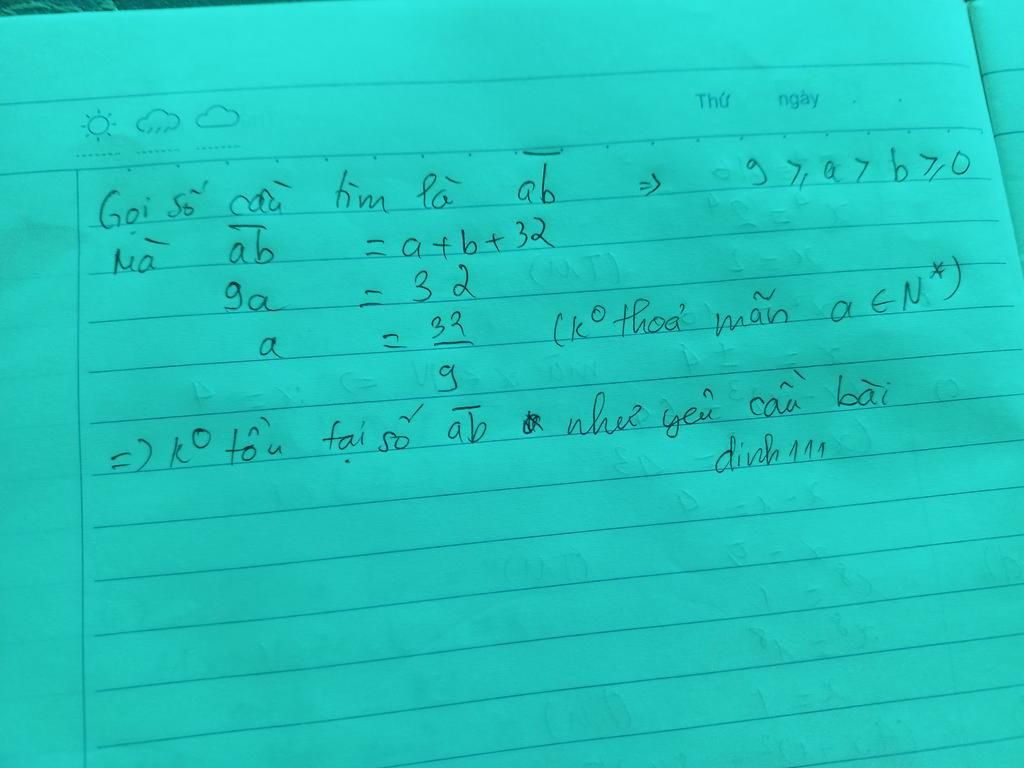 Thứ ngày
Gọi số cần tìm là ab => 9 ⩾ a > b ⩾ 0
Mà ab = a + b + 32
9a = 32
a = 32/9 (k⁰ thoả mãn a ∈ N*)
=> k⁰ tồn tại số ab như yêu cầu bài
dinh111